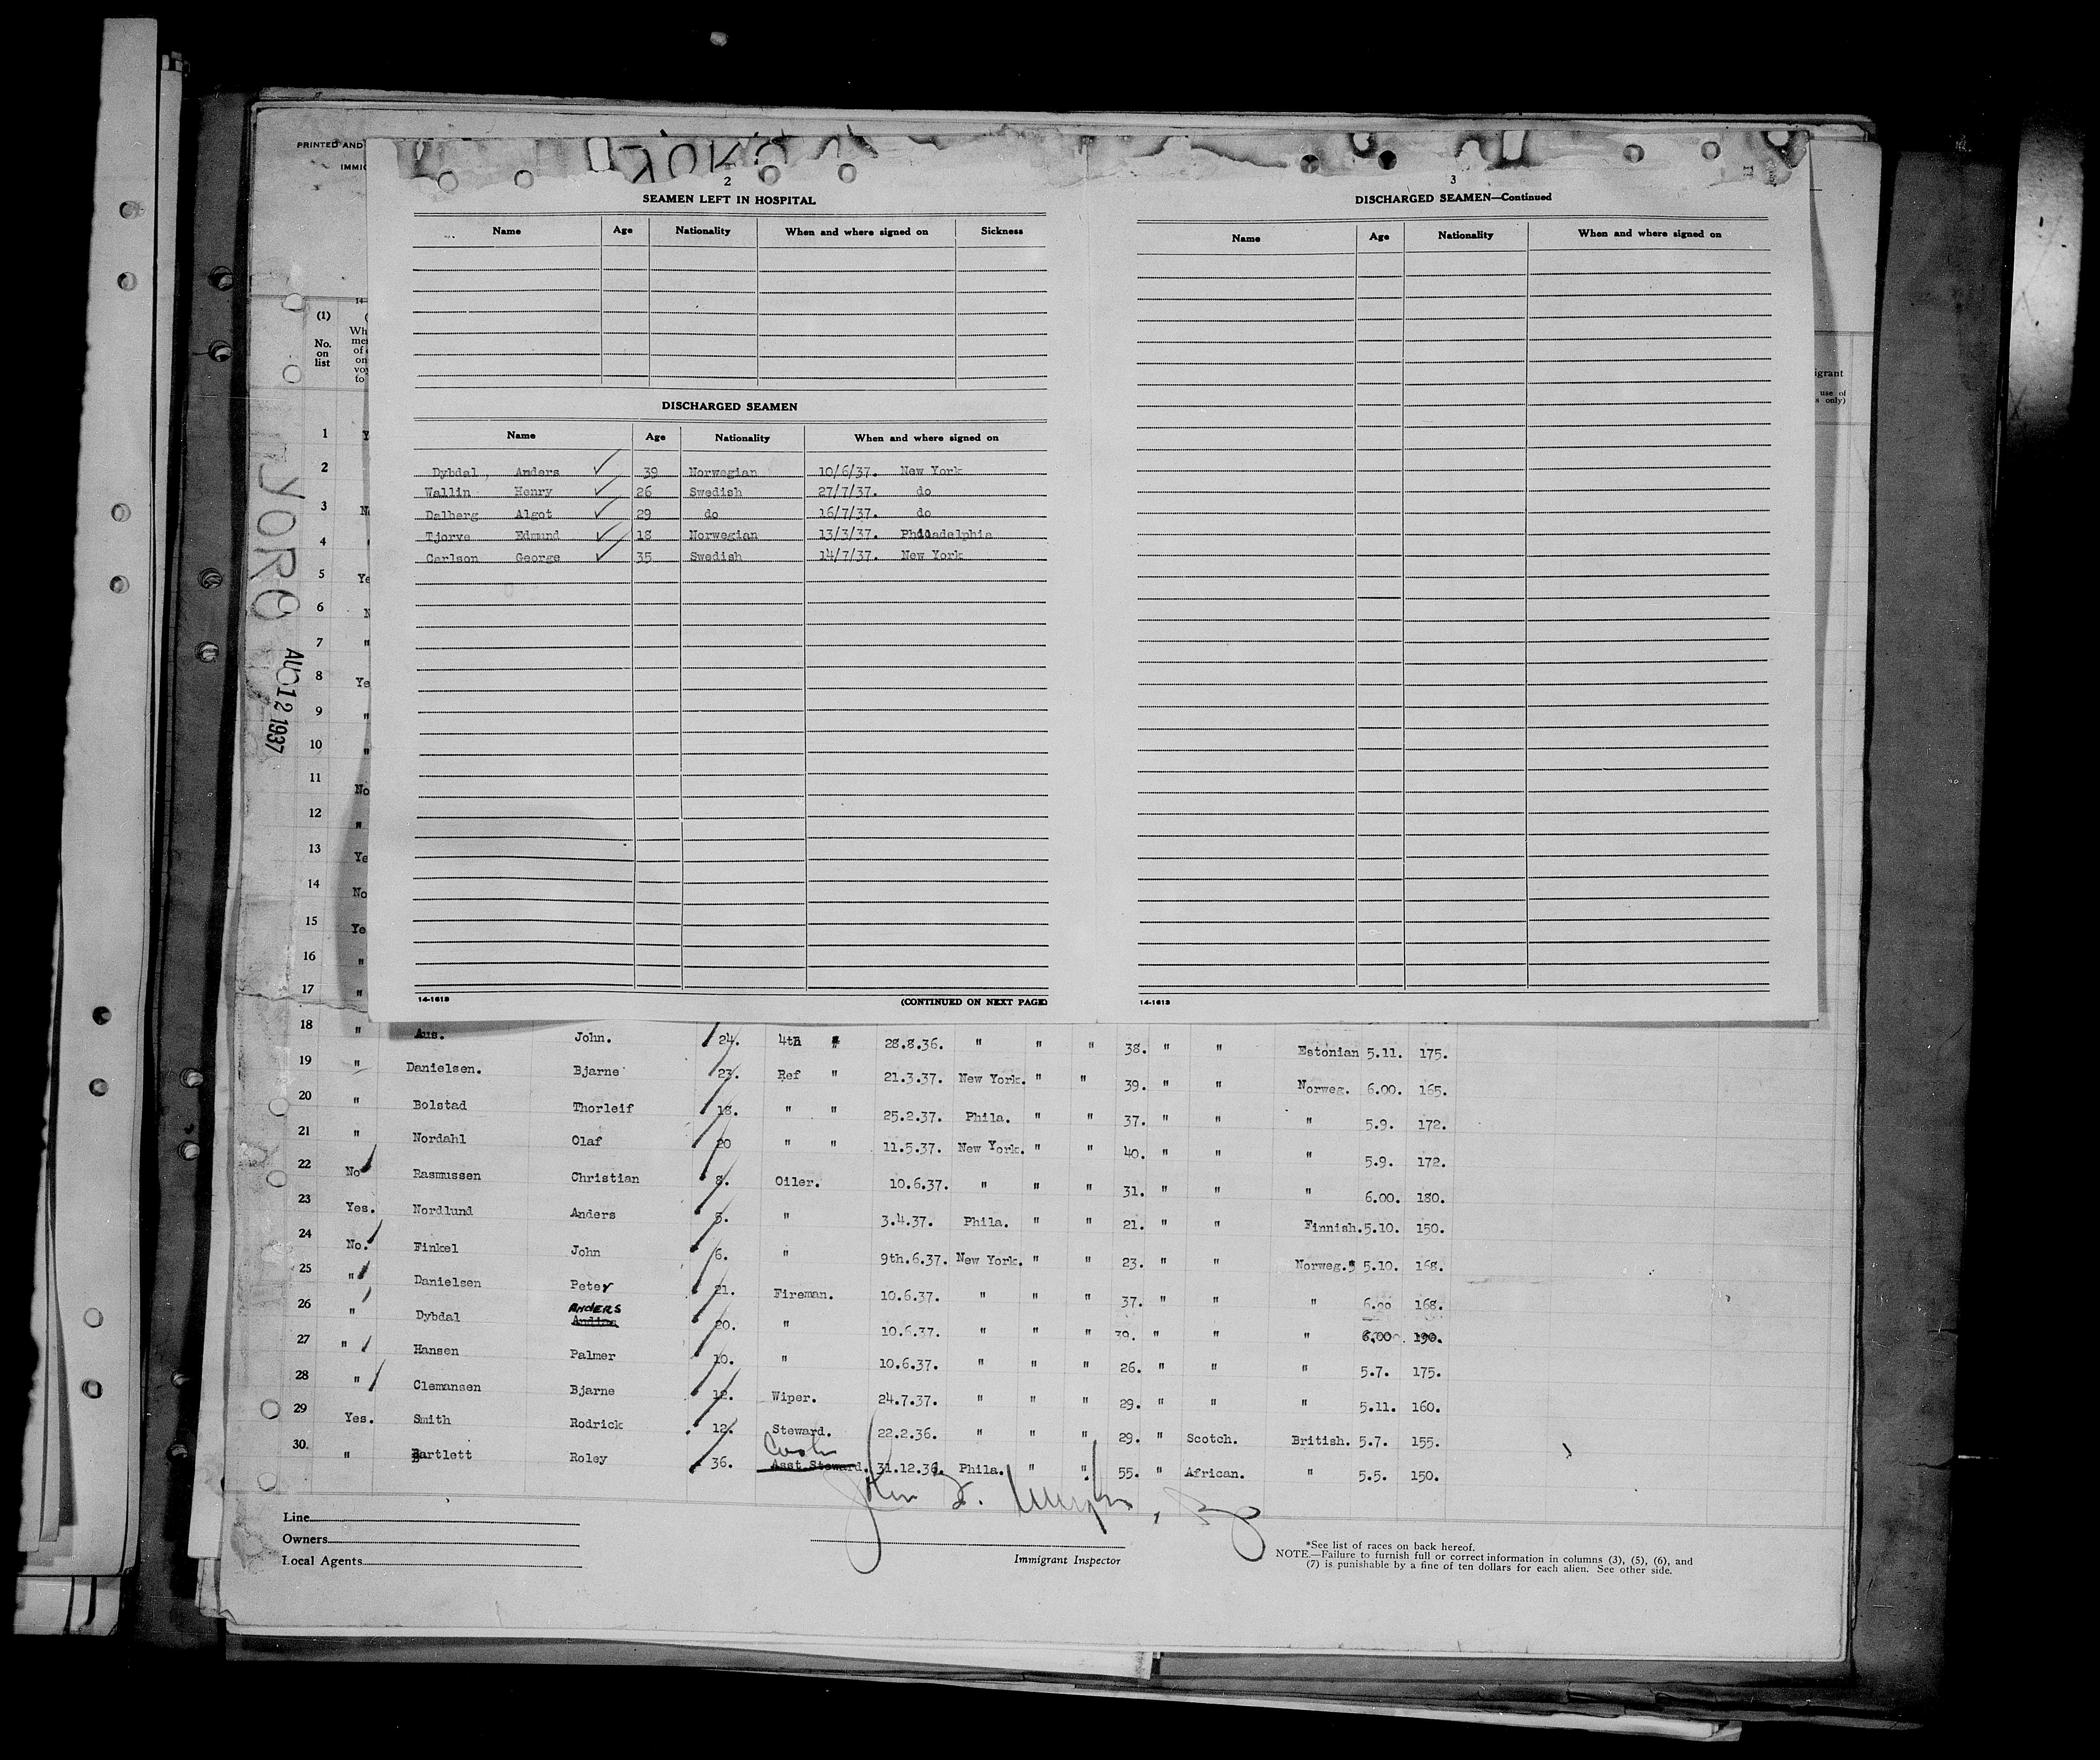 PRINTED AND
IMMIG
2
SEAMEN LEFT IN HOSPITAL
Name Age Nationality When and where signed on Sickness
DISCHARGED SEAMEN
Name Age Nationality When and where signed on
Dybdal, Anders ✓ 39 Norwegian 10/6/37. New York
Wallin Henry ✓ 26 Swedish 27/7/37. do
Dalberg Algot ✓ 29 do 16/7/37. do
Tjorve Edmund ✓ 18 Norwegian 13/3/37. Philadelphia
Carlson George ✓ 35 Swedish 14/7/37. New York
14-1613 (CONTINUED ON NEXT PAGE)
3
DISCHARGED SEAMEN—Continued
Name Age Nationality When and where signed on
14-1613
igrant
use of
s only)
14
(1)
No.
on
list
Wh
me
of
on
vo
to
AUG 12 1937
1 Y
2
3 N
4 "
5 Ye
6 N
7 "
8 Ye
9 "
10 "
11 No
12 "
13 Ye
14 No
15 Ye
16 "
17 "
18 " Aus. John. 24. 4th " 28.8.36. " " " 38. " " Estonian 5.11. 175.
19 " Danielsen. Bjarne 23. Ref " 21.3.37. New York. " " 39. " " Norweg. 6.00. 165.
20 " Bolstad Thorleif 18. " " 25.2.37. Phila. " " 37. " " " 5.9. 172.
21 " Nordahl Olaf 20 " " 11.5.37. New York. " " 40. " " " 5.9. 172.
22 No Rasmussen Christian 8. Oiler. 10.6.37. " " " 31. " " " 6.00. 180.
23 Yes. Nordlund Anders 5. " 3.4.37. Phila. " " 21. " " Finnish. 5.10. 150.
24 No. Finkel John 6. " 9th.6.37. New York. " " 23. " " Norweg. 5.10. 168.
25 " Danielsen Peter 21. Fireman. 10.6.37. " " " 37. " " " 6.00 168.
26 " Dybdal ANDERS 20. " 10.6.37. " " " 39. " " " 6.00. 190.
27 " Hansen Palmer 10. " 10.6.37. " " " 26. " " " 5.7. 175.
28 " Clemansen Bjarne 12. Wiper. 24.7.37. " " " 29. " " " 5.11. 160.
29 Yes. Smith Rodrick 12. Steward. 22.2.36. " " " 29. " Scotch. British. 5.7. 155.
30. " Bartlett Roley 36. Asst.Steward. 31.12.36. Phila. " " 55. " African. " 5.5. 150.
Line
Owners
Local Agents
Immigrant Inspector
*See list of races on back hereof.
NOTE.—Failure to furnish full or correct information in columns (3), (5), (6), and
(7) is punishable by a fine of ten dollars for each alien. See other side.